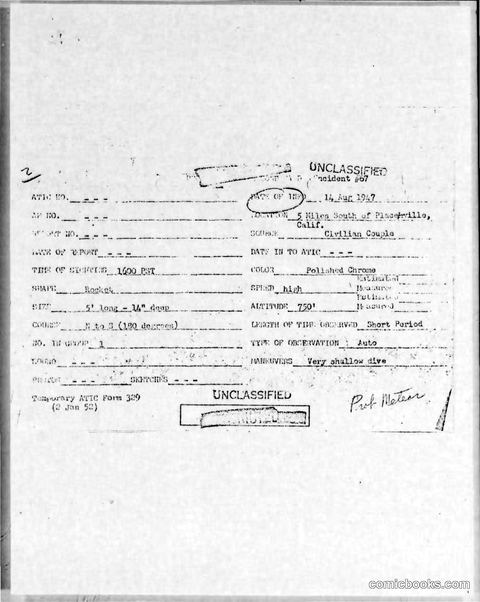 2
UNCLASSIFIED
Incident #67
ATIC NO. - - - DATE OF INFO 14 Aug 1947
AF NO. - - - LOCATION 5 Miles South of Placerville,
Calif.
REPORT NO. - - - SOURCE Civilian Couple
DATE OF REPORT - - - DATE IN TO ATIC - - -
TIME OF SIGHTING 1600 PST COLOR Polished Chrome
Estimated
SHAPE Rocket SPEED high Measured
Estimated
SIZE 5' long - 14" deep ALTITUDE 750' Measured
COURSE N to S (180 degrees) LENGTH OF TIME OBSERVED Short Period
NO. IN GROUP 1 TYPE OF OBSERVATION Auto
SOUND - - - MANEUVERS Very shallow dive
PHOTOS - - - SKETCHES - - -
Temporary ATIC Form 329
(2 Jan 52)
UNCLASSIFIED
Prob Meteor
comicbooks.com